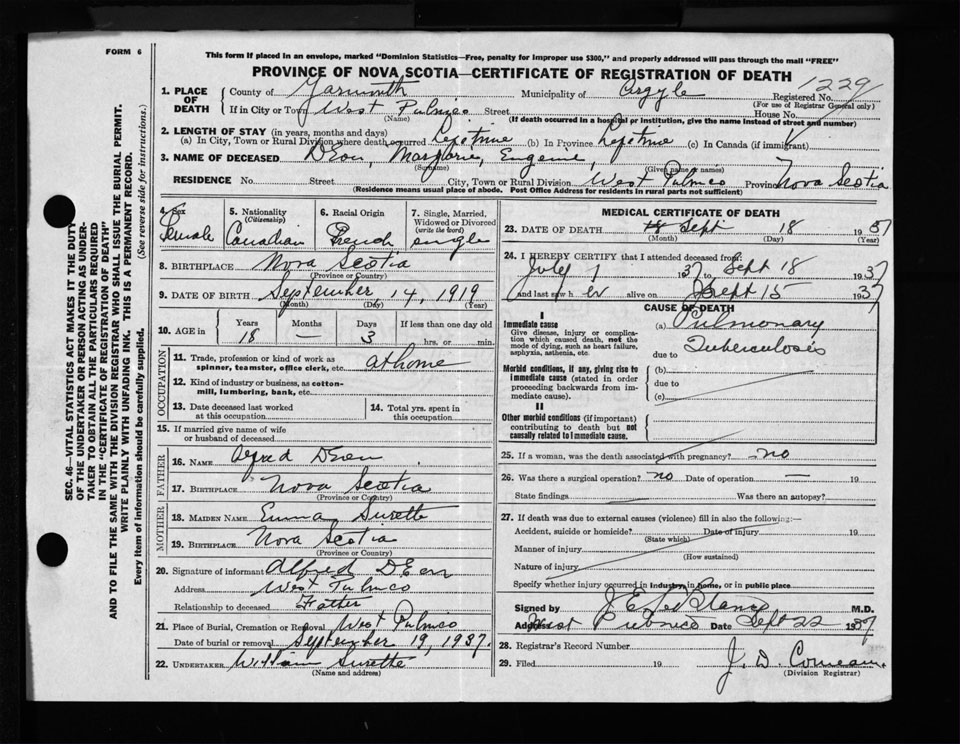 FORM 6
This form if placed in an envelope, marked "Dominion Statistics—Free, penalty for improper use $300," and properly addressed will pass through the mail "FREE"
PROVINCE OF NOVA SCOTIA—CERTIFICATE OF REGISTRATION OF DEATH
1. PLACE OF DEATH County of Yarmouth Municipality of Argyle Registered No. 1229
(For use of Registrar General only)
If in City or Town West Pubnico Street House No.
(Name) (If death occurred in a hospital or institution, give the name instead of street and number)
2. LENGTH OF STAY (in years, months and days)
(a) In City, Town or Rural Division where death occurred Lifetime (b) In Province Lifetime (c) In Canada (if immigrant)
3. NAME OF DECEASED DEon, Marjorie, Eugenie,
(Surname) (Given name or names)
RESIDENCE No. Street City, Town or Rural Division West Pubnico Province Nova Scotia
(Residence means usual place of abode. Post Office Address for residents in rural parts not sufficient)
4. Sex Female
5. Nationality (Citizenship) Canadian
6. Racial Origin French
7. Single, Married, Widowed or Divorced (write the word) single
8. BIRTHPLACE Nova Scotia
(Province or Country)
9. DATE OF BIRTH September, 14, 1919
(Month) (Day) (Year)
10. AGE in Years 18 Months — Days 3 If less than one day old hrs. or min.
OCCUPATION
11. Trade, profession or kind of work as spinner, teamster, office clerk, etc. at home
12. Kind of industry or business, as cotton-mill, lumbering, bank, etc.
13. Date deceased last worked at this occupation
14. Total yrs. spent in this occupation
15. If married give name of wife or husband of deceased
FATHER
16. NAME Alfred DEon
17. BIRTHPLACE Nova Scotia
(Province or Country)
MOTHER
18. MAIDEN NAME Emma Surette
19. BIRTHPLACE Nova Scotia
(Province or Country)
20. Signature of informant Alfred DEon
Address West Pubnico
Relationship to deceased Father
21. Place of Burial, Cremation or Removal West Pubnico
Date of burial or removal September 19, 1937.
22. UNDERTAKER William Surette
(Name and address)
MEDICAL CERTIFICATE OF DEATH
23. DATE OF DEATH 18 Sept 18 1937
(Month) (Day) (Year)
24. I HEREBY CERTIFY that I attended deceased from:
July 1 1937 to Sept 18 1937
and last saw h er alive on Sept 15 1937
CAUSE OF DEATH
I
Immediate cause
Give disease, injury or complication which caused death, not the mode of dying, such as heart failure, asphyxia, asthenia, etc
(a) Pulmonary
due to Tuberculosis
Morbid conditions, if any, giving rise to immediate cause (stated in order proceeding backwards from immediate cause).
(b)
due to
(c)
II
Other morbid conditions (if important) contributing to death but not causally related to immediate cause.
25. If a woman, was the death associated with pregnancy? no
26. Was there a surgical operation? no Date of operation — 19
State findings Was there an autopsy?
27. If death was due to external causes (violence) fill in also the following:—
Accident, suicide or homicide? Date of injury 19
(State which)
Manner of injury
(How sustained)
Nature of injury
Specify whether injury occurred in industry, in home, or in public place
Signed by J E LeBlanc M.D.
Address West Pubnico Date Sept 22 1937
28. Registrar's Record Number
29. Filed 19 J. D. Comeau
(Division Registrar)
SEC. 46—VITAL STATISTICS ACT MAKES IT THE DUTY
OF THE UNDERTAKER OR PERSON ACTING AS UNDER-
TAKER TO OBTAIN ALL THE PARTICULARS REQUIRED
IN THE "CERTIFICATE OF REGISTRATION OF DEATH"
AND TO FILE THE SAME WITH THE DIVISION REGISTRAR WHO SHALL ISSUE THE BURIAL PERMIT.
WRITE PLAINLY WITH UNFADING INK. THIS IS A PERMANENT RECORD.
Every item of information should be carefully supplied. (See reverse side for instructions.)